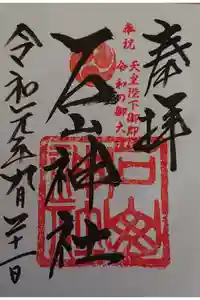 奉拝
奉祝
天皇陛下御即
令和の御大
石山神社
令和元年九月二十一日